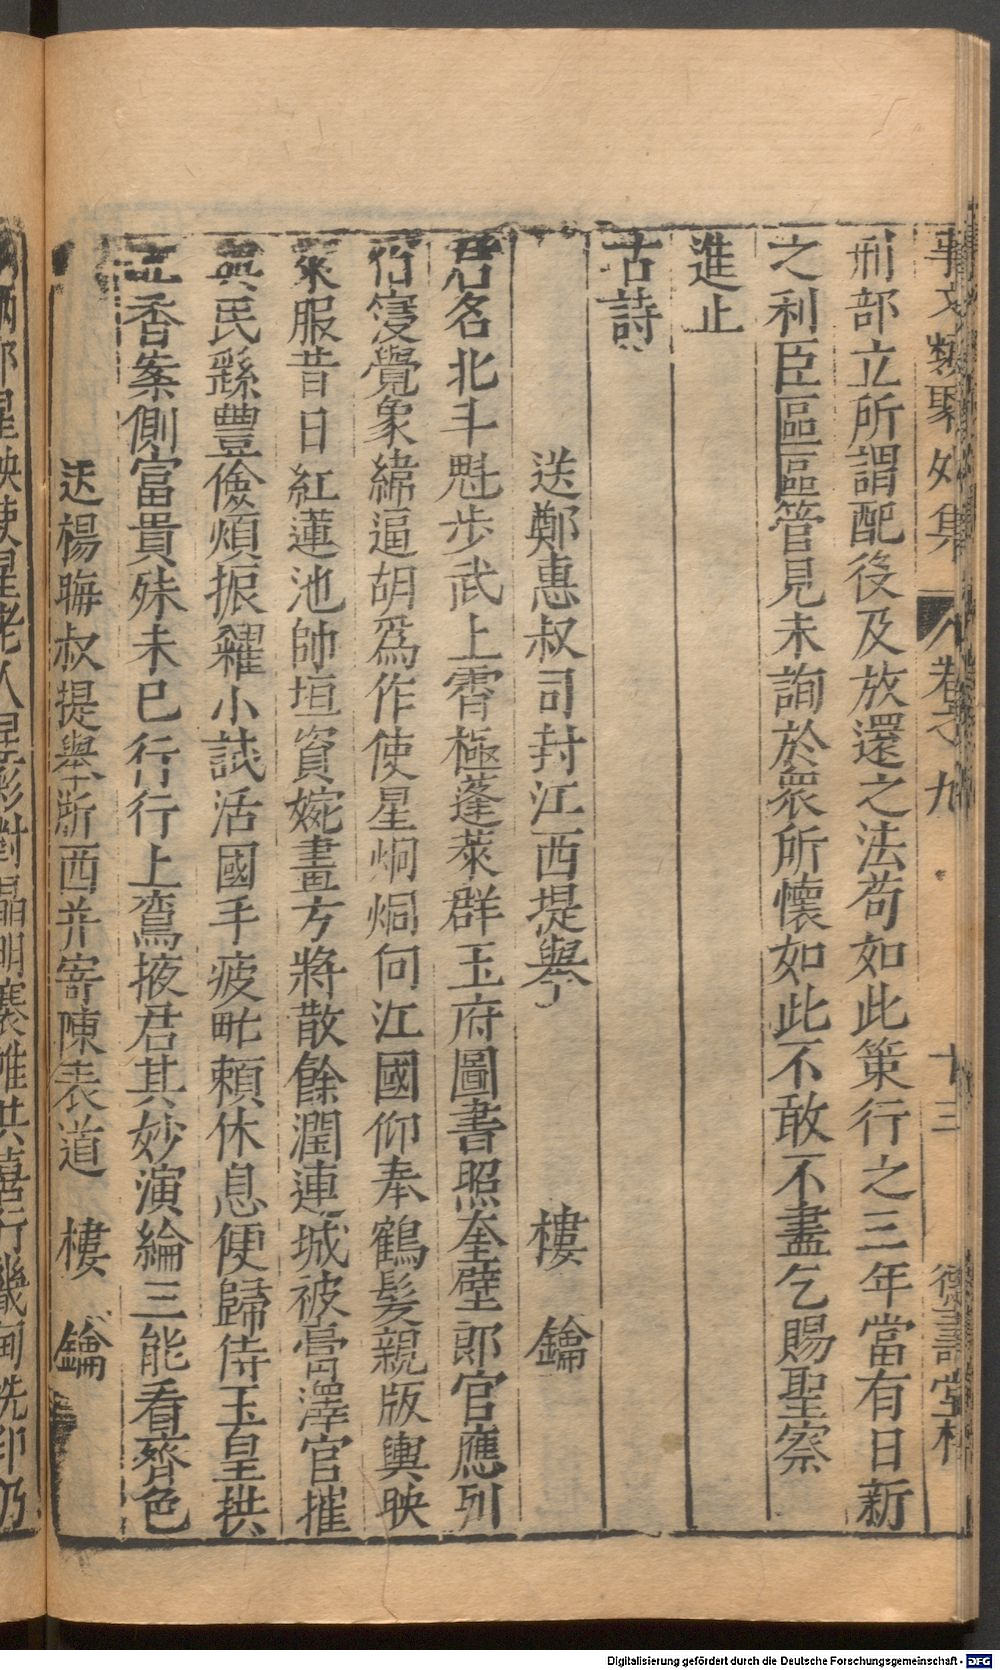 事文類聚外集 卷之九 十三 德壽堂梓
刑部立所謂配役及放還之法苟如此策行之三年當有日新
之利臣區區管見未詢於衆所懷如此不敢不盡乞賜聖察
進止
古詩
送鄭惠叔司封江西提舉 樓 鑰
君名北斗魁步武上霄極蓬萊群玉府圖書照奎壁郎官應列
宿寖覺象緯逼胡爲作使星炯炯向江國仰奉鶴髮親版輿映
衆服昔日紅蓮池帥垣資婉畫方將散餘潤連城被膏澤官摧
與民繇豐儉煩振糶小試活國手疲甿頼休息便歸侍玉皇拱
立香案側富貴殊未已行行上鴛掖君其妙演綸三能看齊色
送楊晦叔提舉浙西并寄陳表道 樓 鑰
使星老人星彩對晶明褰帷共喜行畿甸洗印乃
Digitalisierung gefördert durch die Deutsche Forschungsgemeinschaft - DFG